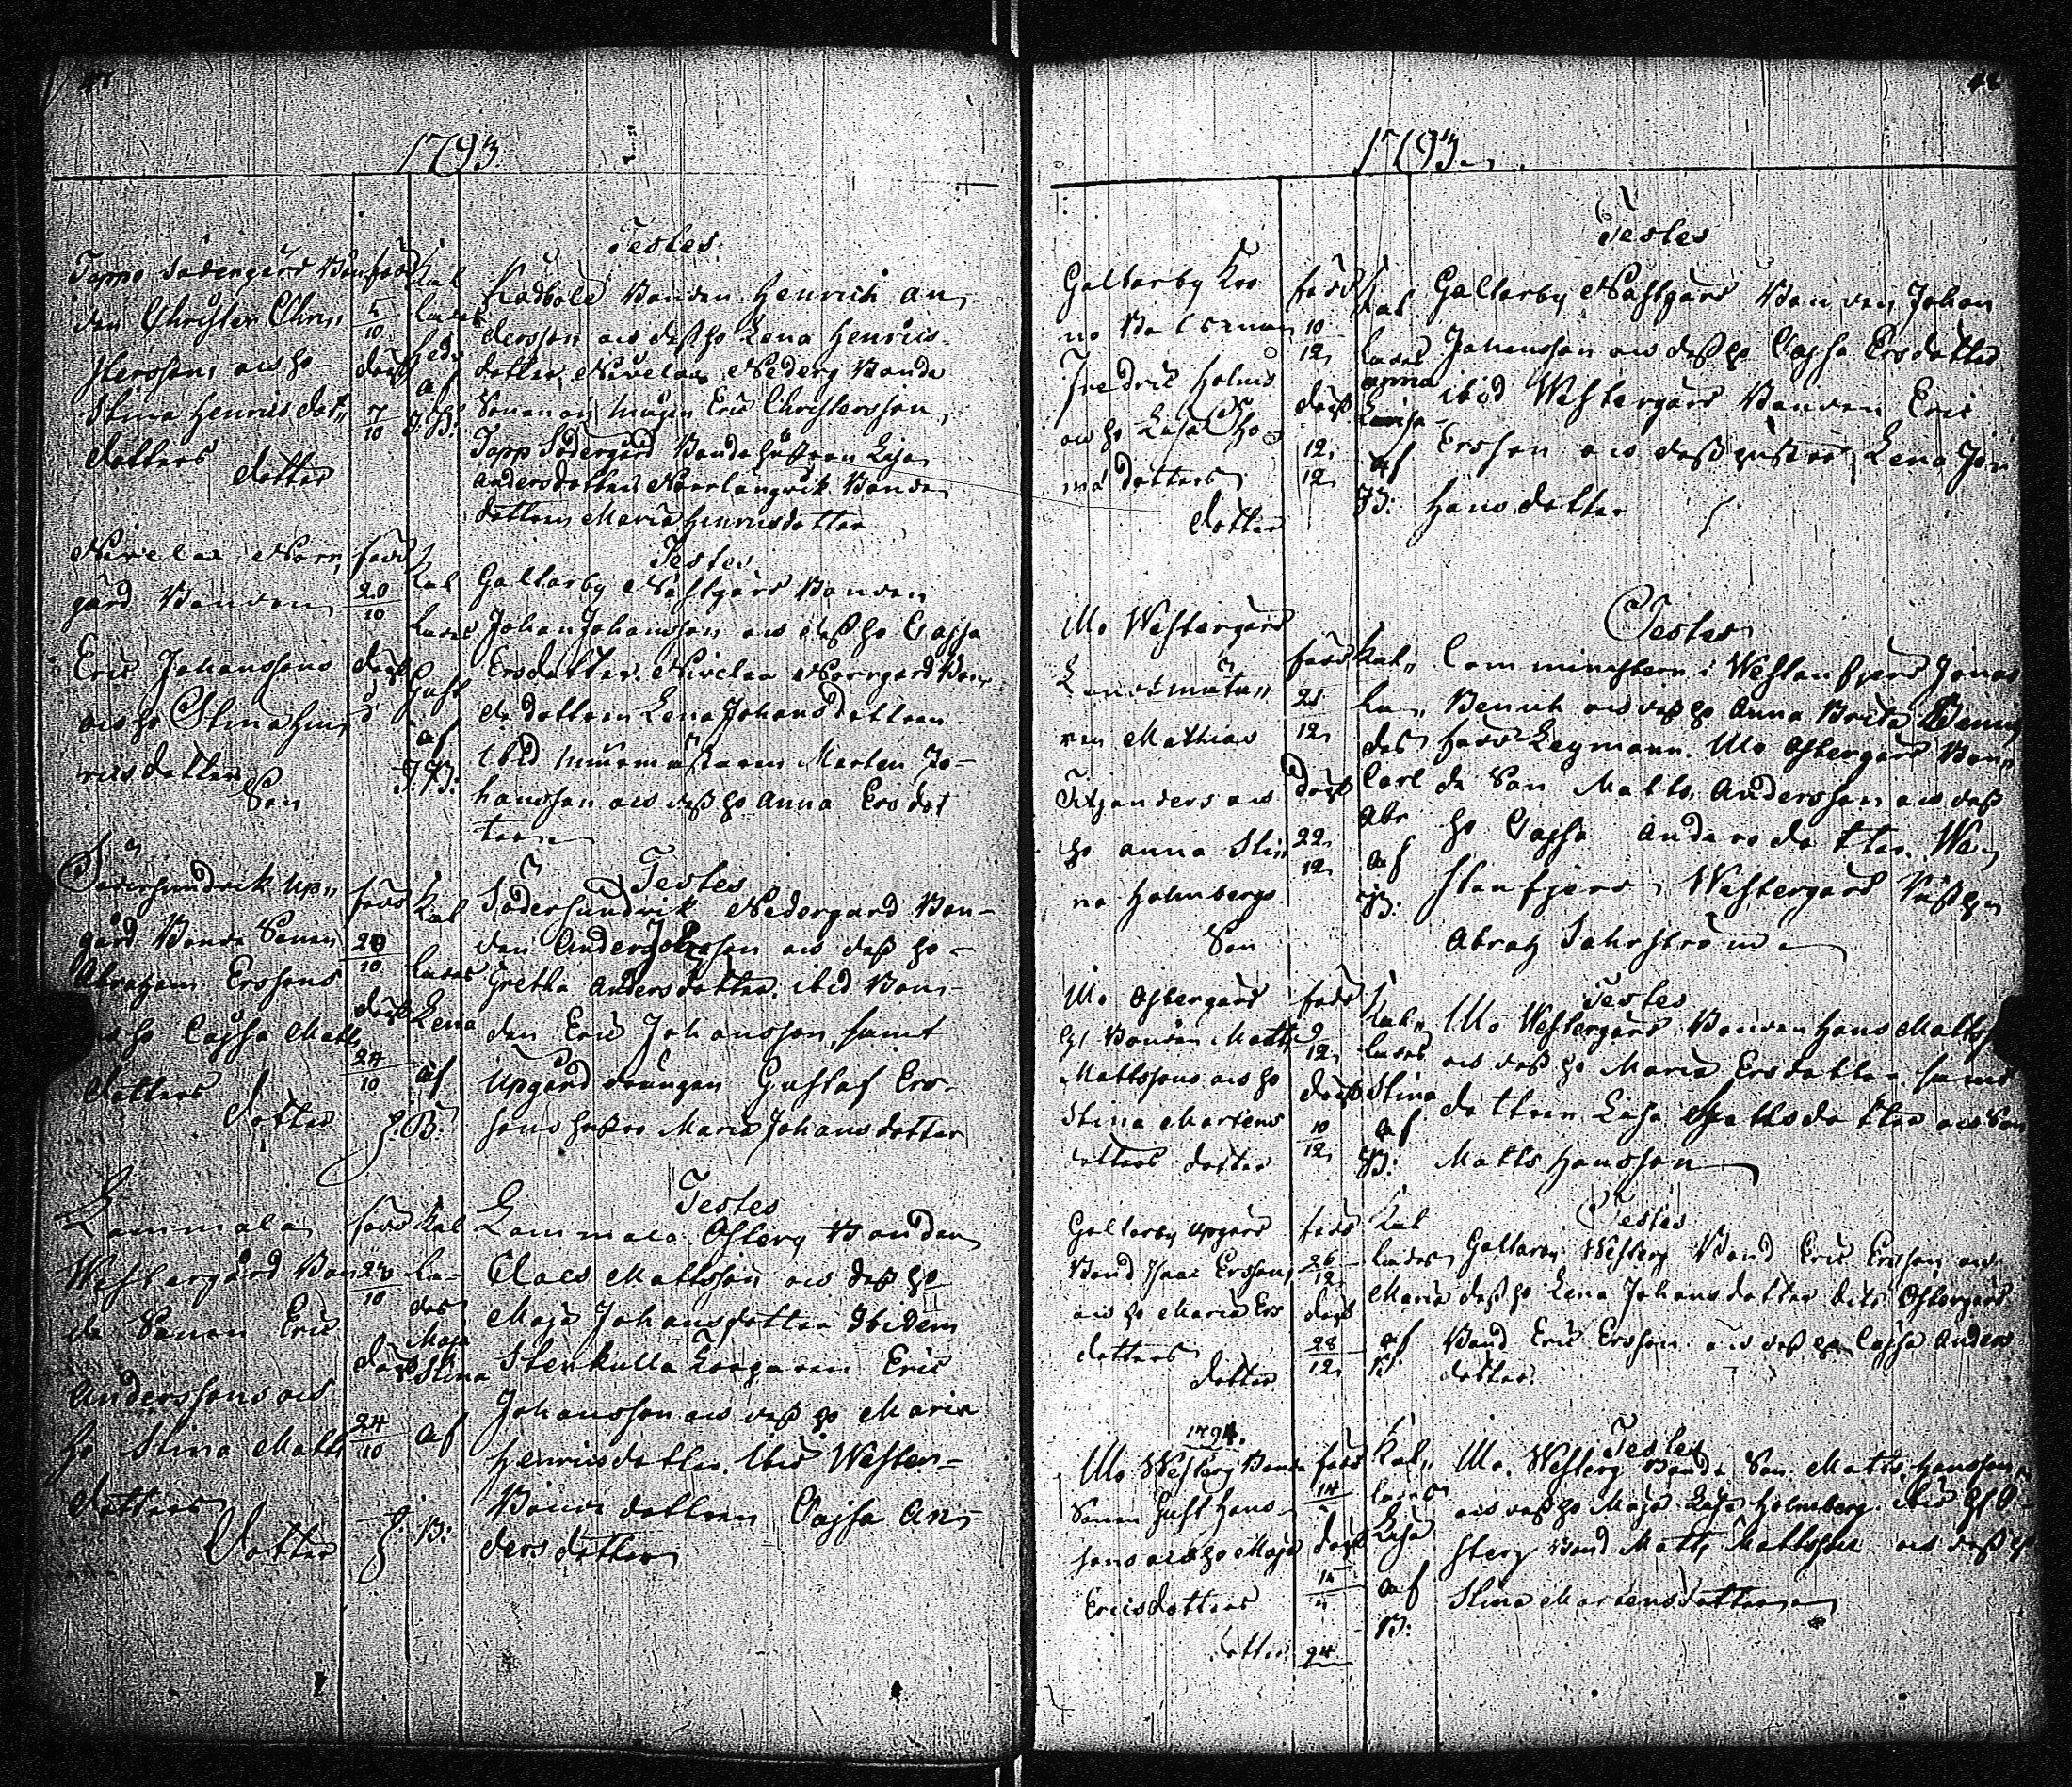 1793.
Testes.
Tappo Södergård Bon
den Christer Chri,,
sterssons och ho
Stina Henricsdot,,
dotters
dotter
född
5
10
döpt
7
10
Kal
lades
Hedv
af
J. B:
Kådböle Bonden Henrich An,-
dersson och dess ho Lena Henrics-
dotter, Nivelax Nederg Bonde
Sonen och mågen Eric Christersson
Tapp Södergård Bonde hustrun Lisa
Andersdotter Norrlångvik Bonde
dottern Maria Henricsdotter
Nivelax Norr,,
gård Bonden
Eric Johanssons
och ho Stina Hen,,
ricsdotters
Son
född
20
10
döpt
Kal
lades
Gust
af
J. B:
Testes
Galtarby Nästgård Bonden
Johan Johansson och dess ho Cajsa
Ersdotter. Nivelax Norrgård Bon,
de dottern Lena Johansdottern
Ibid murmästaren Marten Jo-
hansson och dess ho Anna Ersdot
ter
Södersundvik Up,,
gård Bonde Sonen
Abraham Erssons
och ho Cajsa Matts
dotters
dotter
född
20
10
döpt
24
10
Kal
lades
Lena
af
J. B:
Testes
Södersundvik Nedergård Bon-
den Anders Johansson och dess ho-
Gretha Andersdotter, ibid Bon-
den Eric Johansson, samt
Upgård drängen Gustaf Ers-
sons hustro Maria Johansdotter
Lammala
Westergård Bon
de Sonen Eric
Anderssons och
ho Stina Matts
dotters
Dotter
född
23
10
döpt
24
10
Kal
la-
des
Maja
Stina
af
J. B:
Testes
Lammala Österg Bonden
Claes Mattsson och dess ho
Maja Johansdotter Ibidem
Stenkulla Torparen Eric
Johansson och dess ho Maria
Henricsdotter. Ibid Wester-
Bonde dottern Cajsa An,-
dersdotter
1793.
Testes
Galtarby Kro
no Båtsman
Fredric Holms
och ho Lisa Tho-
mä dotters
dotter
född
10
12
döpt
12
12
Kal
lades
Anna
Lisa
af
JB:
Galtarby Nästgård Bonden Johan
Johansson och dess ho Cajsa Ersdotter
ibid Westergård Bonden Eric
Ersson och dess hustro Lena Jo
Hansdotter
Mo Westergård
Landtmäta,,
ren Mathias
Titzanders och
ho Anna Sti,,
na Holmbergs
Son
född
21
12
döpt
22
12
Kal,,
la,,
des
Carl
Abr
af
JB:
Testes
Comministern i Westanfjerd Jonas
Benich och dess ho Anna Brita Benich
född Leymann. Mo Östergård Bon,,
de Son Matts Andersson och dess
ho Cajsa Andersdotter. We,
stanfjerd Westergård
Abrah Sahrström
Mo Östergård
Bonden Matts
Mattssons och ho
Stina Martens
dotters dotter
född
9
12
döpt
10
12
Kal,,
lades
Stina
af
JB:
Testes
Mo Westergård Bonden Hans Matts
och dess ho Maria Ersdotter samt
dottern Lisa Mattsdotter och Son
Matts Hansson
Galtarby Upgård
Bond Isaac Ersson
och ho Maria Ers
dotters
dotter
född
26
12
döpt
28
12
Kal
lades
Maria
af
B
Testes
Galtarby Westerg Bond Eric Ersson och
dess ho Lena Johansdotter dito Östergård
Bond Eric Ersson och dess ho Cajsa Anders
dotter.
1794.
Mo Westerg Bonde
Sonen Gust Hans-
sons och ho Maja
Ericsdotters
dotter
född
14
döpt
15
24
Kal,,
lades
Lisa
af
B:
Testes
Mo Westerg Bonde Son Matts Hansson
och dess ho Maja Lisa Holmberg. ibid Ö-
sterg Bond Matts Mattsson och dess ho
Stina Martensdotter